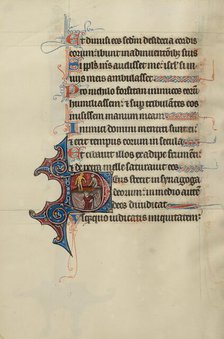 Et dimisi eos secdm desideria cordis
eorum: ibunt in adinventionib; suis
Si ppls ms audisset me: isrl si in
viis meis ambulasset
Pro nichilo forsitan inimicos eorum
humiliassem: et sup tribulantes eos
misissem manum meam
Inimici domini mentiti sunt ei
et erit tempus eorum in secula
Et cibavit illos ex adipe frumen
ti: et de petra melle saturavit eos
Deus stetit in synagoga
deorum: in medio autem
deos diiudicat
Usquequo iudicatis iniquitatem: